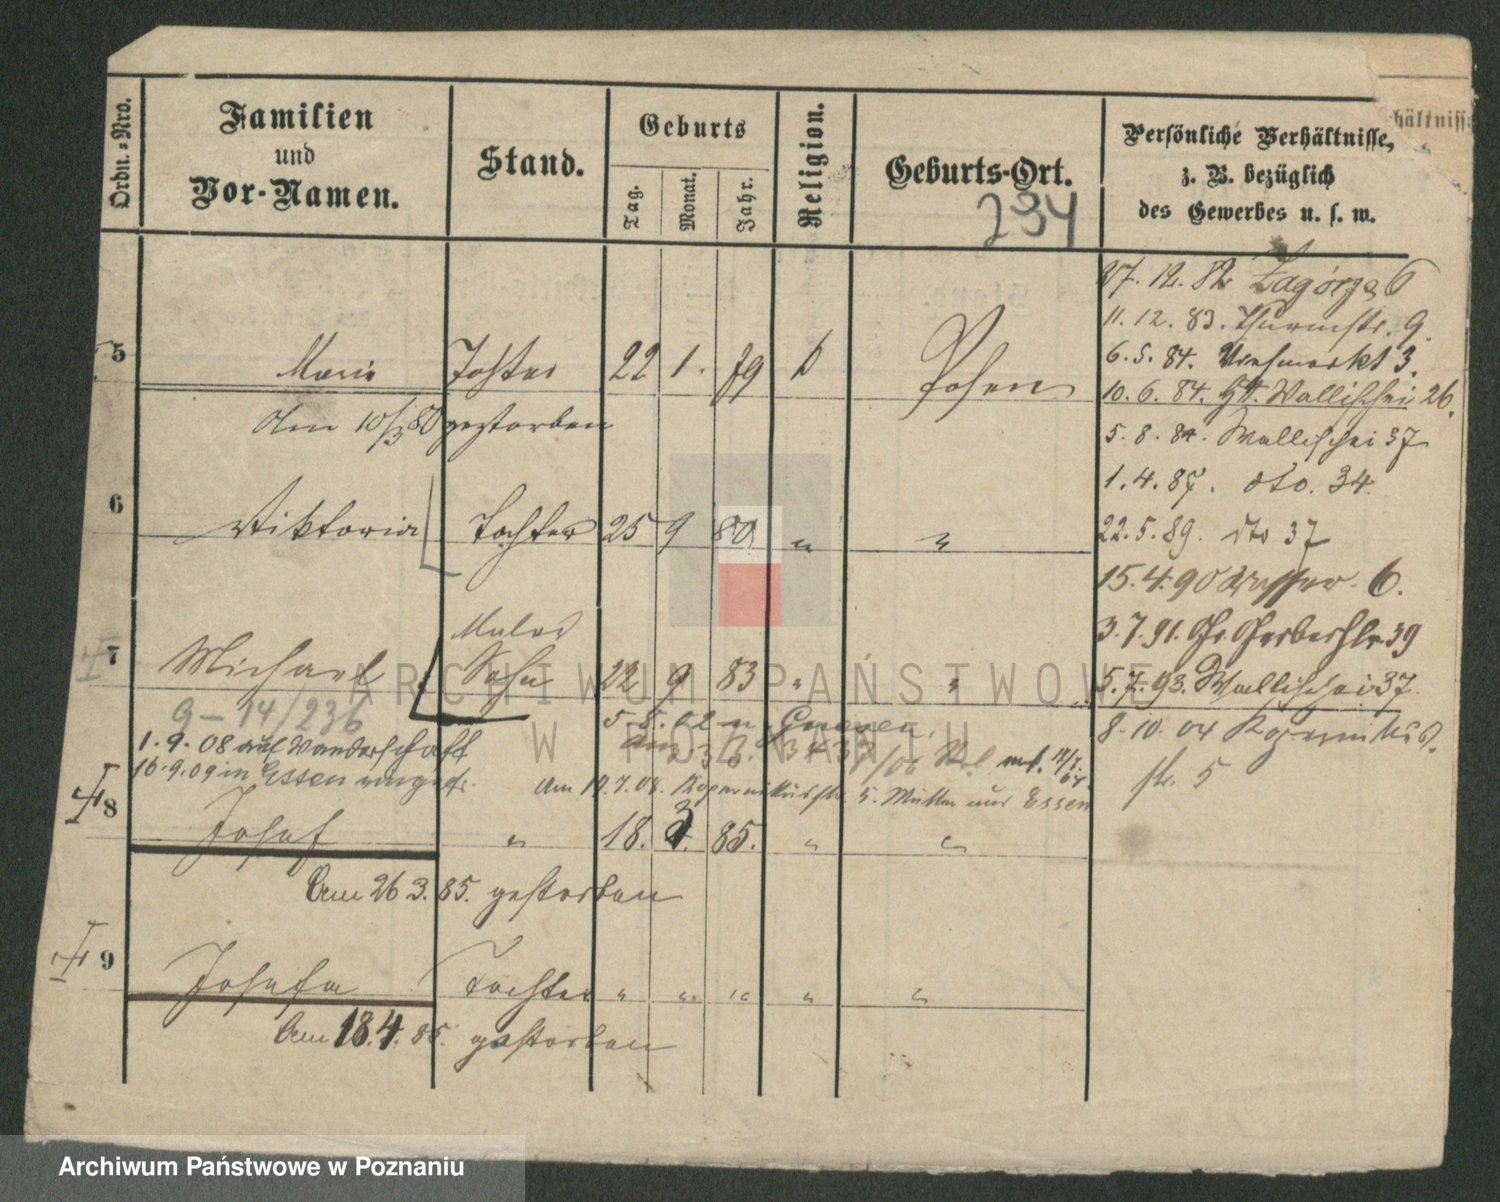 Ordn.-Nro.
Familien
und
Vor-Namen.
Stand.
Geburts
Tag.
Monat.
Jahr.
Religion.
Geburts-Ort.
Persönliche Verhältnisse,
z. B. bezüglich
des Gewerbes u. s. w.
hältnisse
234
27. 12. 82 Zagórze 6
11. 12. 83. Thurmstr. 9.
5 Marie Tochter 22 1. 79 k Posen
6. 5. 84. Viehmarkt 3.
10. 6. 84. Wallischei 26.
Am 10/3 80 gestorben
5. 8. 84. Wallischei 37
1. 4. 87. dto. 34.
6 Viktoria Tochter 25 9 80 " "
22. 5. 89. dto 37
15. 4. 90 Wasser 6.
3. 7. 91. Gr. Gerberstr. 39
Maler
7 Michael Sohn 22 9 83 " "
5. 7. 93. Wallischei 37.
9-14/236
5. 8. 02 n. Gnesen.
8. 10. 04 Kopernikus
str. 5
1. 9. 08 auf Wanderschaft
16. 9. 09 in Essen
Am 19. 7. 08. Kopernikusstr. 5. Mutter aus Essen
8 Josef " 18. 3. 85. " "
Am 26 3. 85. gestorben
9 Josefa Tochter " " " " "
Am 18. 4. 85. gestorben
ARCHIWUM PAŃSTWOWE
W POZNANIU
Archiwum Państwowe w Poznaniu